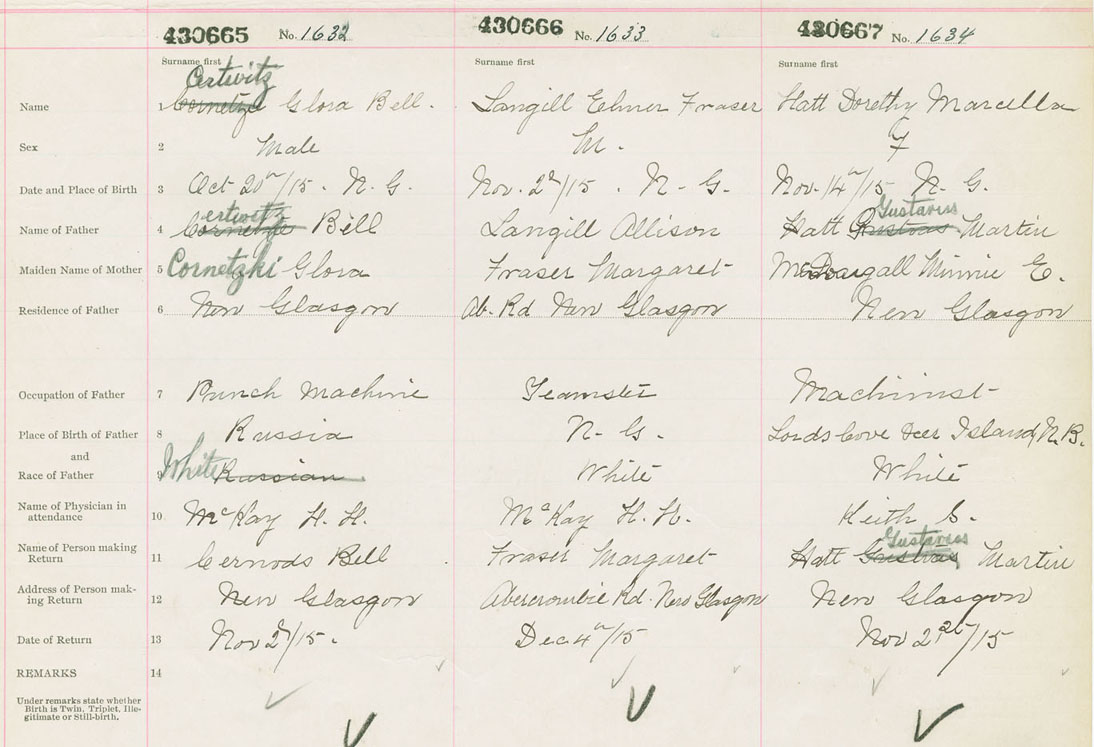 430665 No. 1632 430666 No. 1633 430667 No. 1634
Surname first Surname first Surname first
Certwitz
Name 1 Cornetze Glora Bell. Langill Elmer Fraser Hatt Dorethy Marcella
Sex 2 Male M. F
Date and Place of Birth 3 Oct 20th/15. N. G. Nov. 2d/15. N-G. Nov. 14th/15 N. G.
Certwitz Gustavus
Name of Father 4 Cornetze Bell Langill Allison Hatt Gustvas Martin
Maiden Name of Mother 5 Cornetzki Glora Fraser Margaret McDougall Minnie E.
Residence of Father 6 New Glasgow Ab. Rd New Glasgow New Glasgow
Occupation of Father 7 Punch Machine Teamster Machinist
Place of Birth of Father 8 Russia N-G. Lords Cove Deer Island, N.B.
and
Race of Father 9 White Russian White White
Name of Physician in
attendance 10 McKay H. H. McKay H. H. Keith S.
Gustavus
Name of Person making
Return 11 Cernods Bell Fraser Margaret Hatt Gustvas Martin
Address of Person mak-
ing Return 12 New Glasgow Abercrombie Rd. New Glasgow New Glasgow
Date of Return 13 Nov 2d/15. Dec 4th/15 Nov /15
REMARKS 14
Under remarks state whether
Birth is Twin, Triplet, Ille-
gitimate or Still-birth.